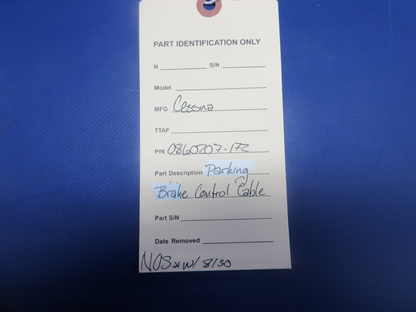 PART IDENTIFICATION ONLY
N S/N
Model
MFG Cessna
TTAF
P/N 0860707-172
Part Description Parking
Brake Control Cable
Part S/N
Date Removed
NOS *W/ 8/30